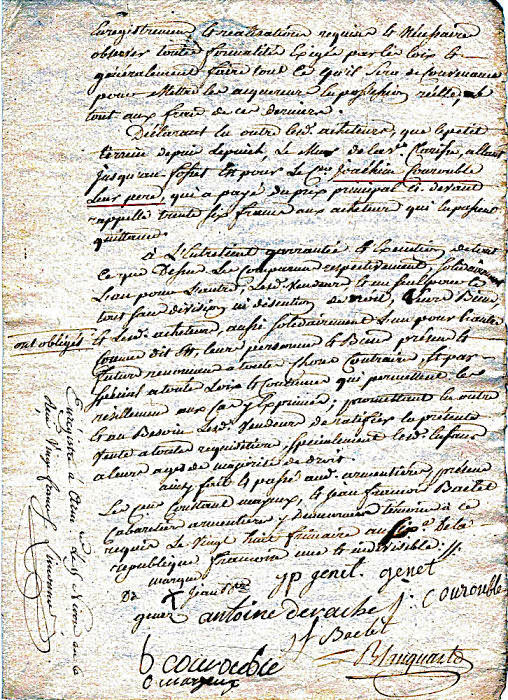 Enregistrement & realisation requise & necessaire
observer toutes formalités exigée par les loix &
generalement faire tout ce qu'il sera de convenance
pour mettre les acquereur en possession reelle, et
tout aux frais de ces derniers.
Declarant en outre lesd. acheteurs, que le petit
terrein depuis le Mur de la Ve Carife, allant
jusqu'au fossé est pour le Cen Joachim Couroublé
leur pere, qui a payé du prix principal ci devant
rappellé trente six francs aux acheteur qui en passent
quittance.
à l'Entretient garrantie & execution de tout
ce que dessus les comparans respectivement, solidairement
l'un pour l'autre, lesd. Vendeurs & un seul pour le
tout sans division ni discution de droit, leurs Biens,
ont obligés
& lesd. acheteur, aussi solidairement l'un pour l'autre
comme dit est, leur personne & Biens présens &
futurs renoncant à toutes choses contraires, et par
special à toute Loix & Coutumes qui permettent les
resilimens aux cas y exprimés; promettant en outre
& au Besoin lesd. Vendeurs de ratifier la presente
Vente à toutes requisition, specialement lesd. enfans
à leurs ages de majorité de droit.
ainsi fait & passé aud. armentieres, présens
les Cens Constant mazeux, & Jean francois Baelet
Cabaretier armentieres y demeurant temoins à ce
requis le vingt huit frimaire an six de la
republique francaise une & indivisible.
marque
De X Jean Bte
genet
jp genet. genot
antoine derache J: Couroublé
jf Baelet
b couroublé
c mazeux
Enregistré à Arm. le 29 Nivose an 6